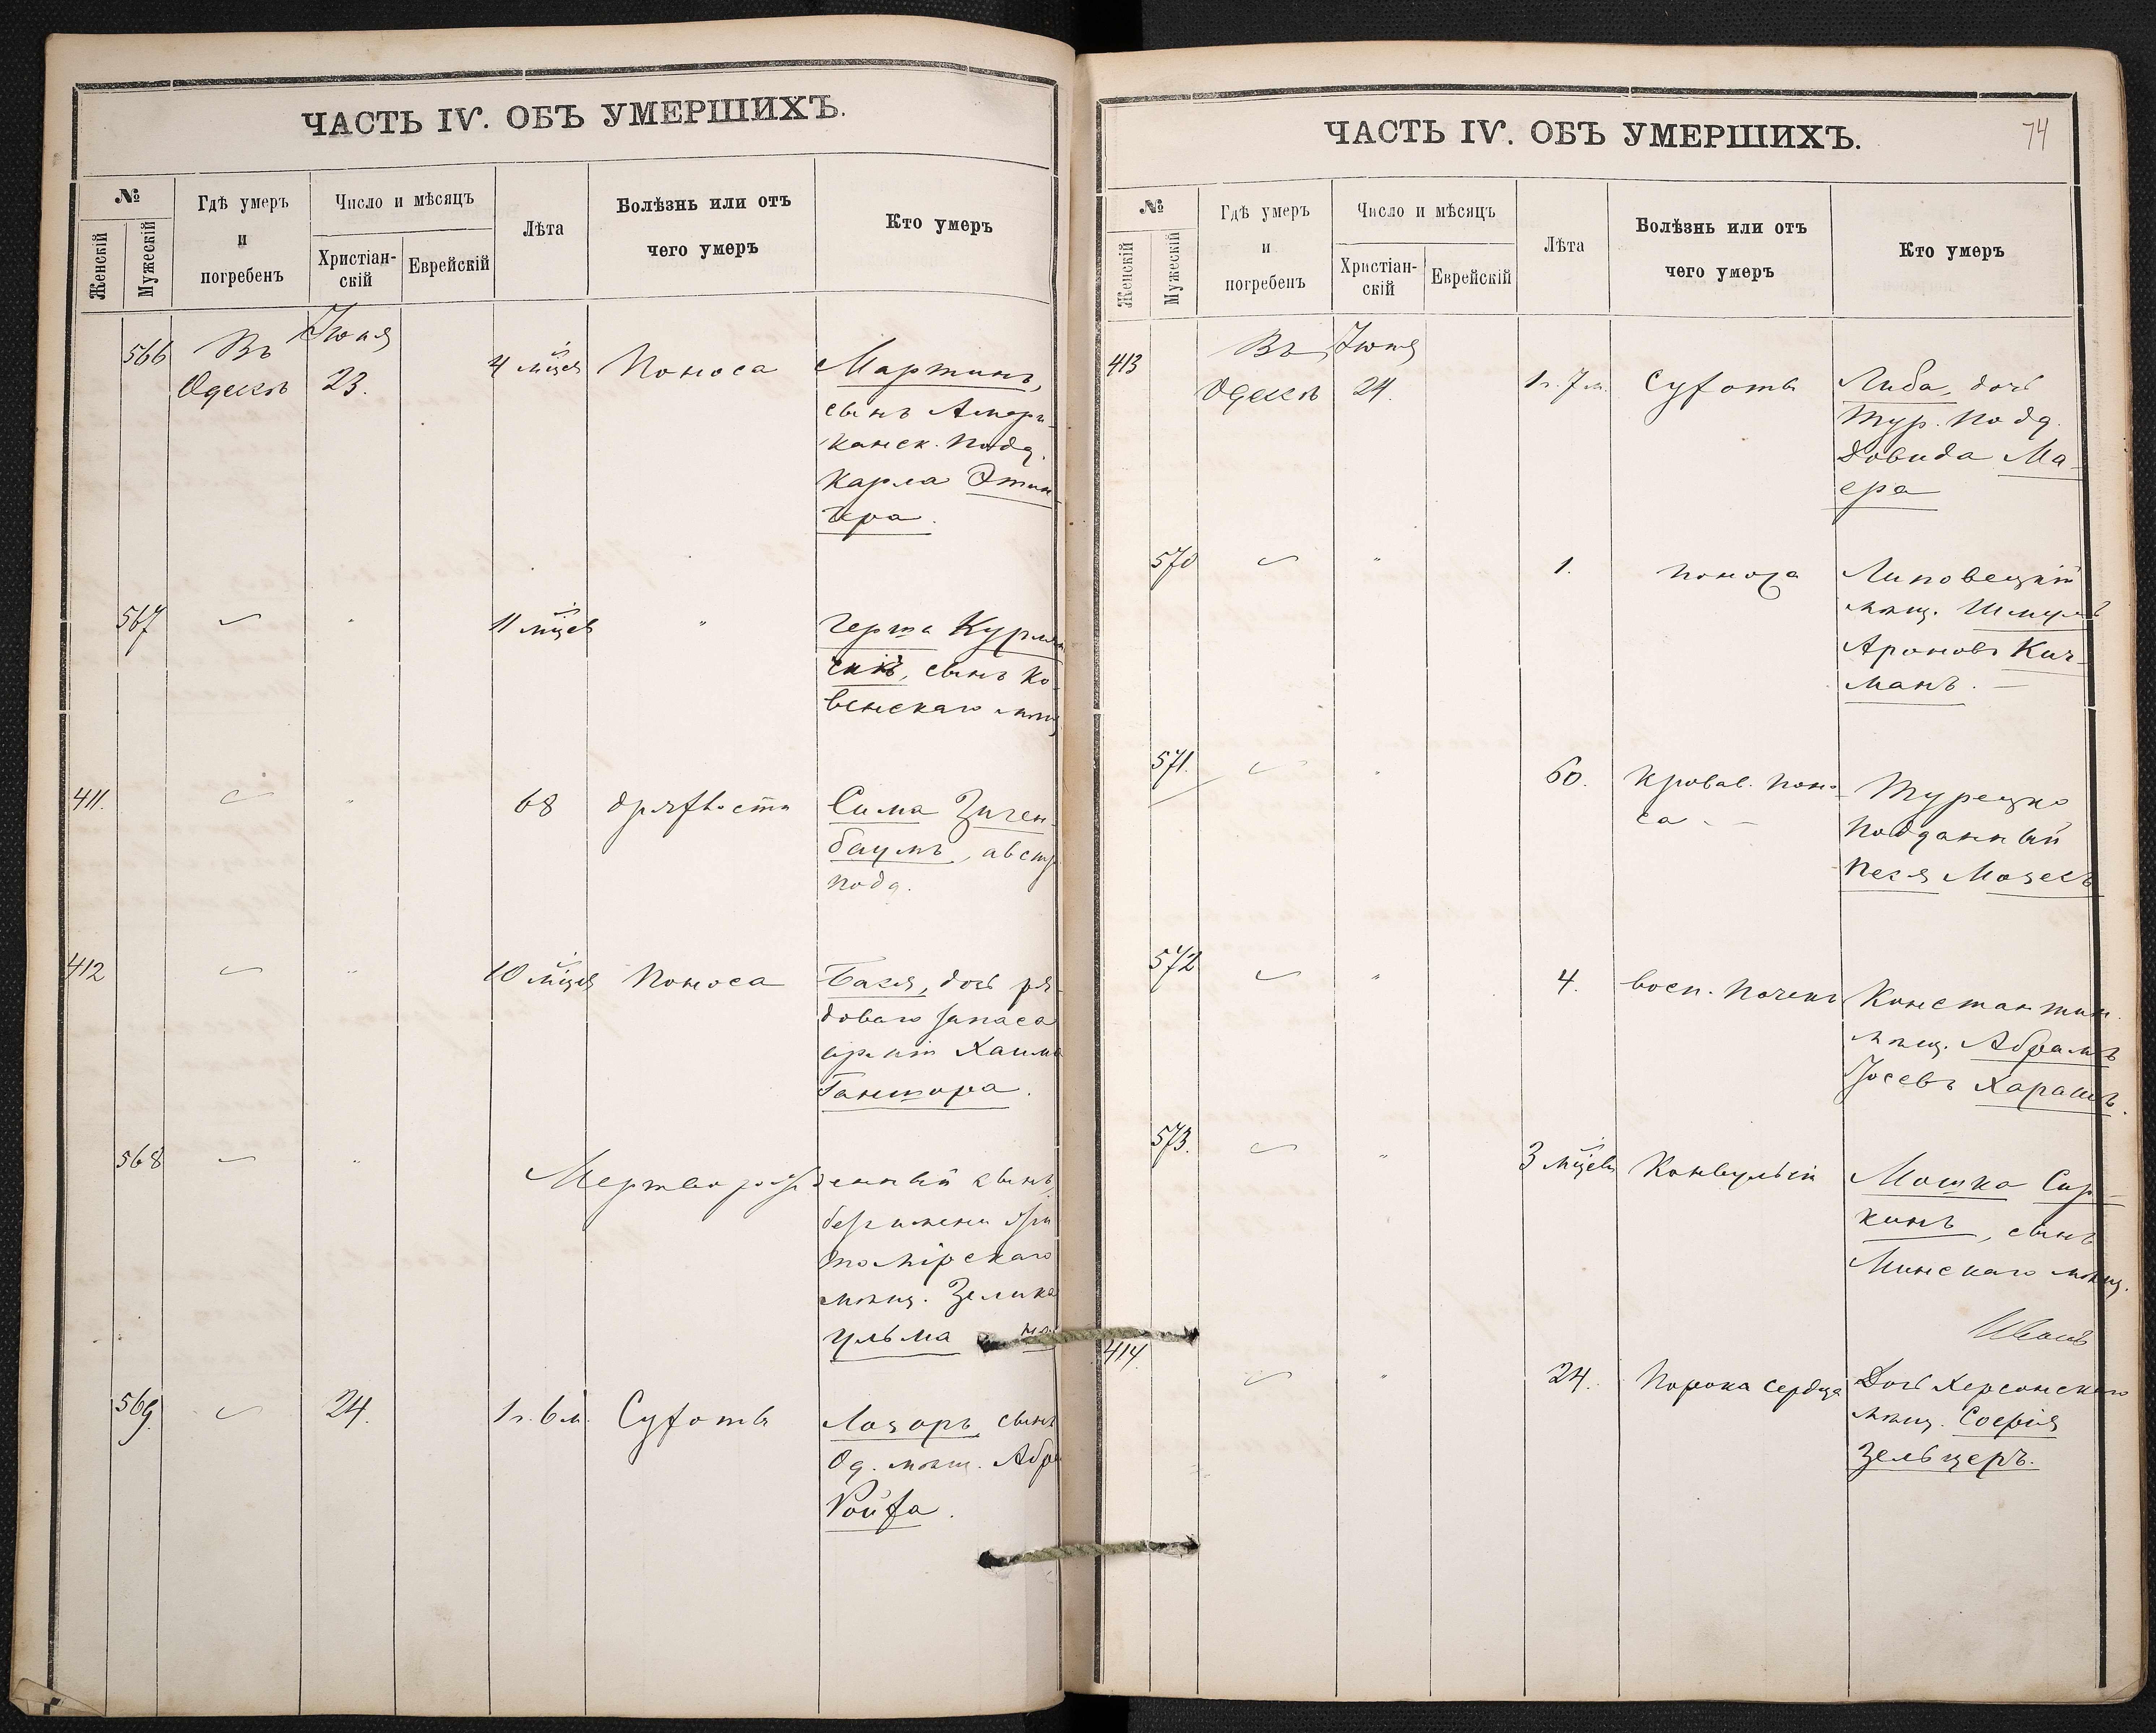 ЧАСТЬ IV. ОБЪ УМЕРШИХЪ.
№
Женскій
Мужескій
Гдѣ умеръ
и
погребенъ
Число и мѣсяцъ
Христіан-
скій
Еврейскій
Лѣта
Болѣзнь или отъ
чего умеръ
Кто умеръ
566 Въ Іюля 4 м-ца Поноса Мартинъ,
Одессѣ 23. сынъ Амери-
канск. подд.
Карла Этин-
гера.
567 " 11 м-цев "
Герша
скій, сынъ Ко-
венскаго мѣщ.
411. " 68 дряхлости Сима Зиген-
баумъ, австр.
подд.
412 " 10 м-цев Поноса Бася, дочь ря-
доваго запаса
арміи Хаима
568 " Мертворожденный сынъ,
безъ имени Жи-
томірскаго
мѣщ. Зелика
569. 24. 1 г. 6 м. Сухоты Лазарь сынъ
Од. мѣщ.
Ройха.
ЧАСТЬ IV. ОБЪ УМЕРШИХЪ.
74
№
Женскій
Мужескій
Гдѣ умеръ
и
погребенъ
Число и мѣсяцъ
Христіан-
скій
Еврейскій
Лѣта
Болѣзнь или отъ
чего умеръ
Кто умеръ
413 Въ Іюля 1 г. 7 м. Сухоты Либа, дочь
Одессѣ 24. Тур. подд.
Довида Ма-
ера
570 " 1. поноса Липовецкій
мѣщ. Шмуль
Ароновъ Кич-
манъ. —
571. " 60. Кровав. поно-
са Турецко
подданный
Песя Мозесъ
572 " 4. восп. почекъ Константин.
мѣщ. Абрамъ
Іосевъ Харашъ.
573. " 3 м-цев Конвульсій Мошка Сир-
кинъ, сынъ
Минскаго мѣщ.
414. " 24. Порока сердца Дочь Херсонскаго
мѣщ. Софія
Зельцеръ.